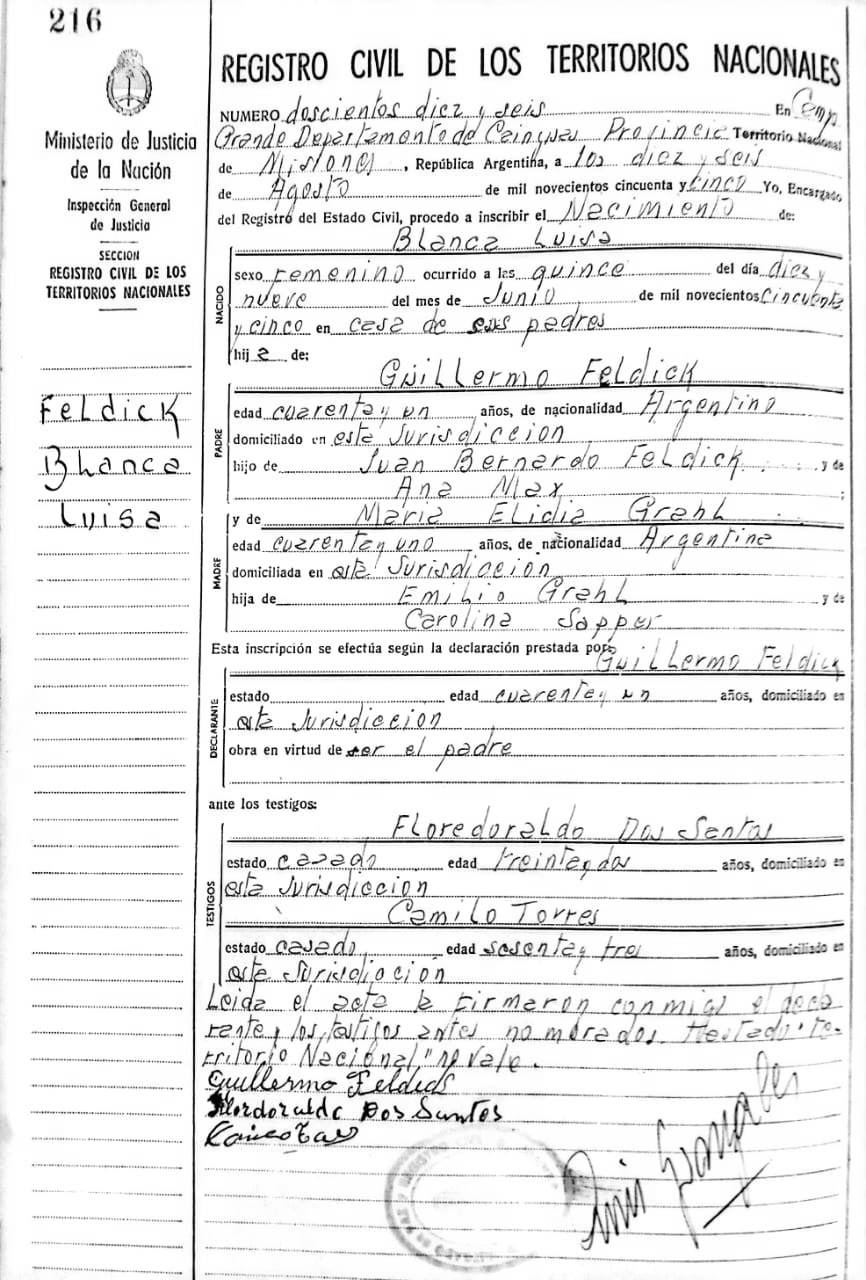 216
Ministerio de Justicia
de la Nación
Inspección General
de Justicia
SECCION
REGISTRO CIVIL DE LOS
TERRITORIOS NACIONALES
Feldick
Blanca
Luisa
REGISTRO CIVIL DE LOS TERRITORIOS NACIONALES
NUMERO doscientos diez y seis En Camp
Grande Departamento de Cainguas Provincia Territorio Nacional
de Misiones, República Argentina, a los diez y seis
de Agosto de mil novecientos cincuenta y cinco Yo, Encargado
del Registro del Estado Civil, procedo a inscribir el Nacimiento de:
Blanca Luisa
NACIDO
sexo femenino ocurrido a las quince del día diez y
nueve del mes de Junio de mil novecientos cincuenta
y cinco en casa de sus padres
hij a de:
Guillermo Feldick
PADRE
edad cuarenta y un años, de nacionalidad Argentino
domiciliado en esta Jurisdiccion
hijo de Juan Bernardo Feldick y de
Ana Max ;
y de Maria Elidia Grahl
MADRE
edad cuarenta y uno años, de nacionalidad Argentina
domiciliada en esta Jurisdiccion
hija de Emilio Grahl y de
Carolina Sapper
Esta inscripción se efectúa según la declaración prestada por Guillermo Feldick
DECLARANTE
estado edad cuarenta y un años, domiciliado en
esta Jurisdiccion
obra en virtud de ser el padre
ante los testigos:
Floredoraldo Dos Santos
TESTIGOS
estado casado edad treinta y dos años, domiciliado en
esta Jurisdiccion
Camilo Torres
estado casado edad sesenta y tres años, domiciliado en
esta Jurisdiccion
Leida el acta la firmaron conmigo el decla
rante y los testigos antes nomorados. Testado "Te-
rritorio Nacional" no vale.
Guillermo Feldick
Flordoraldo Dos Santos